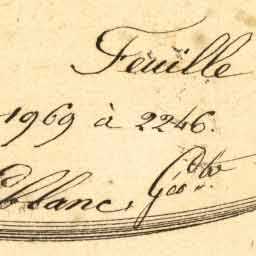 Feuille
1969 à 2246.
Blanc, Géo.tre